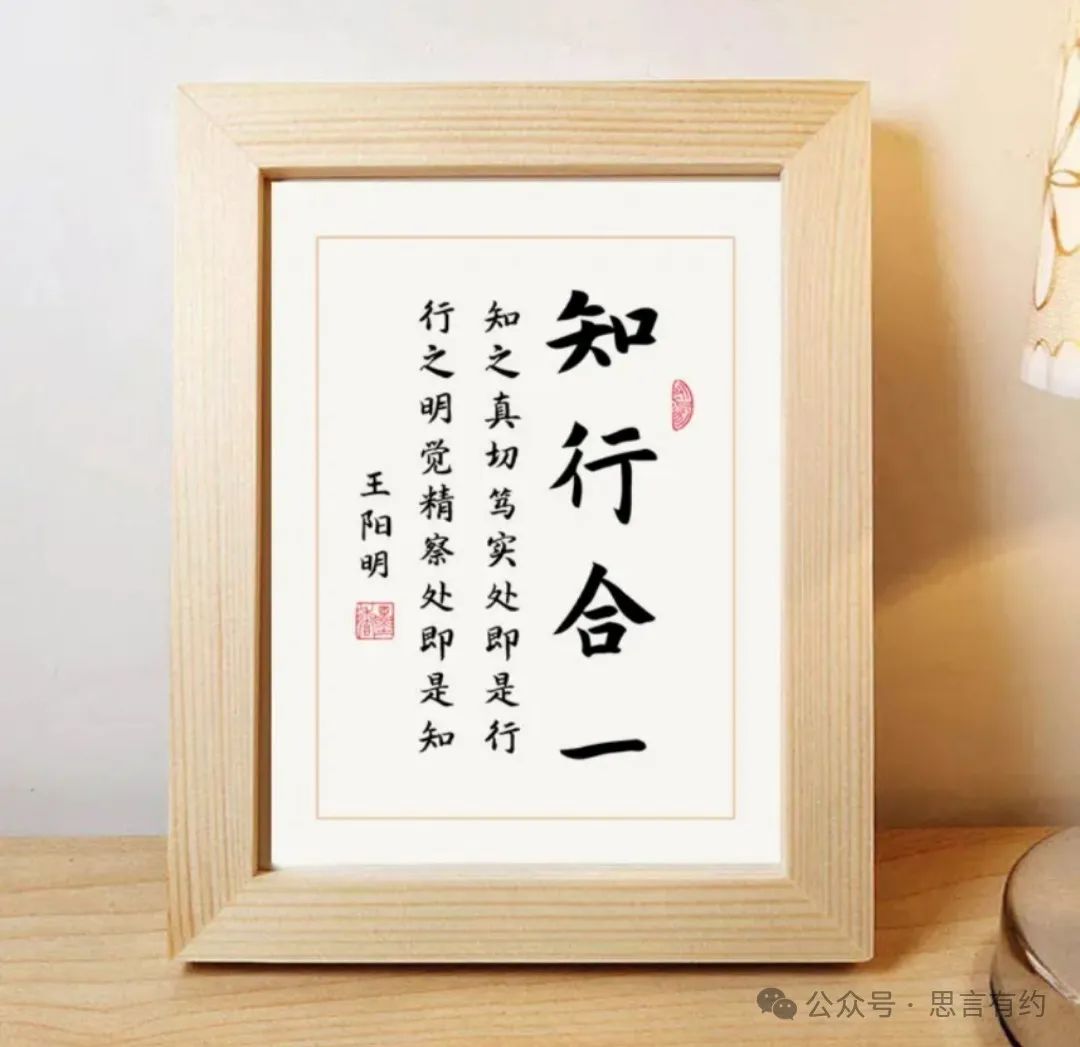 知行合一
知之真切笃实处即是行
行之明觉精察处即是知
王阳明
公众号 · 思言有约